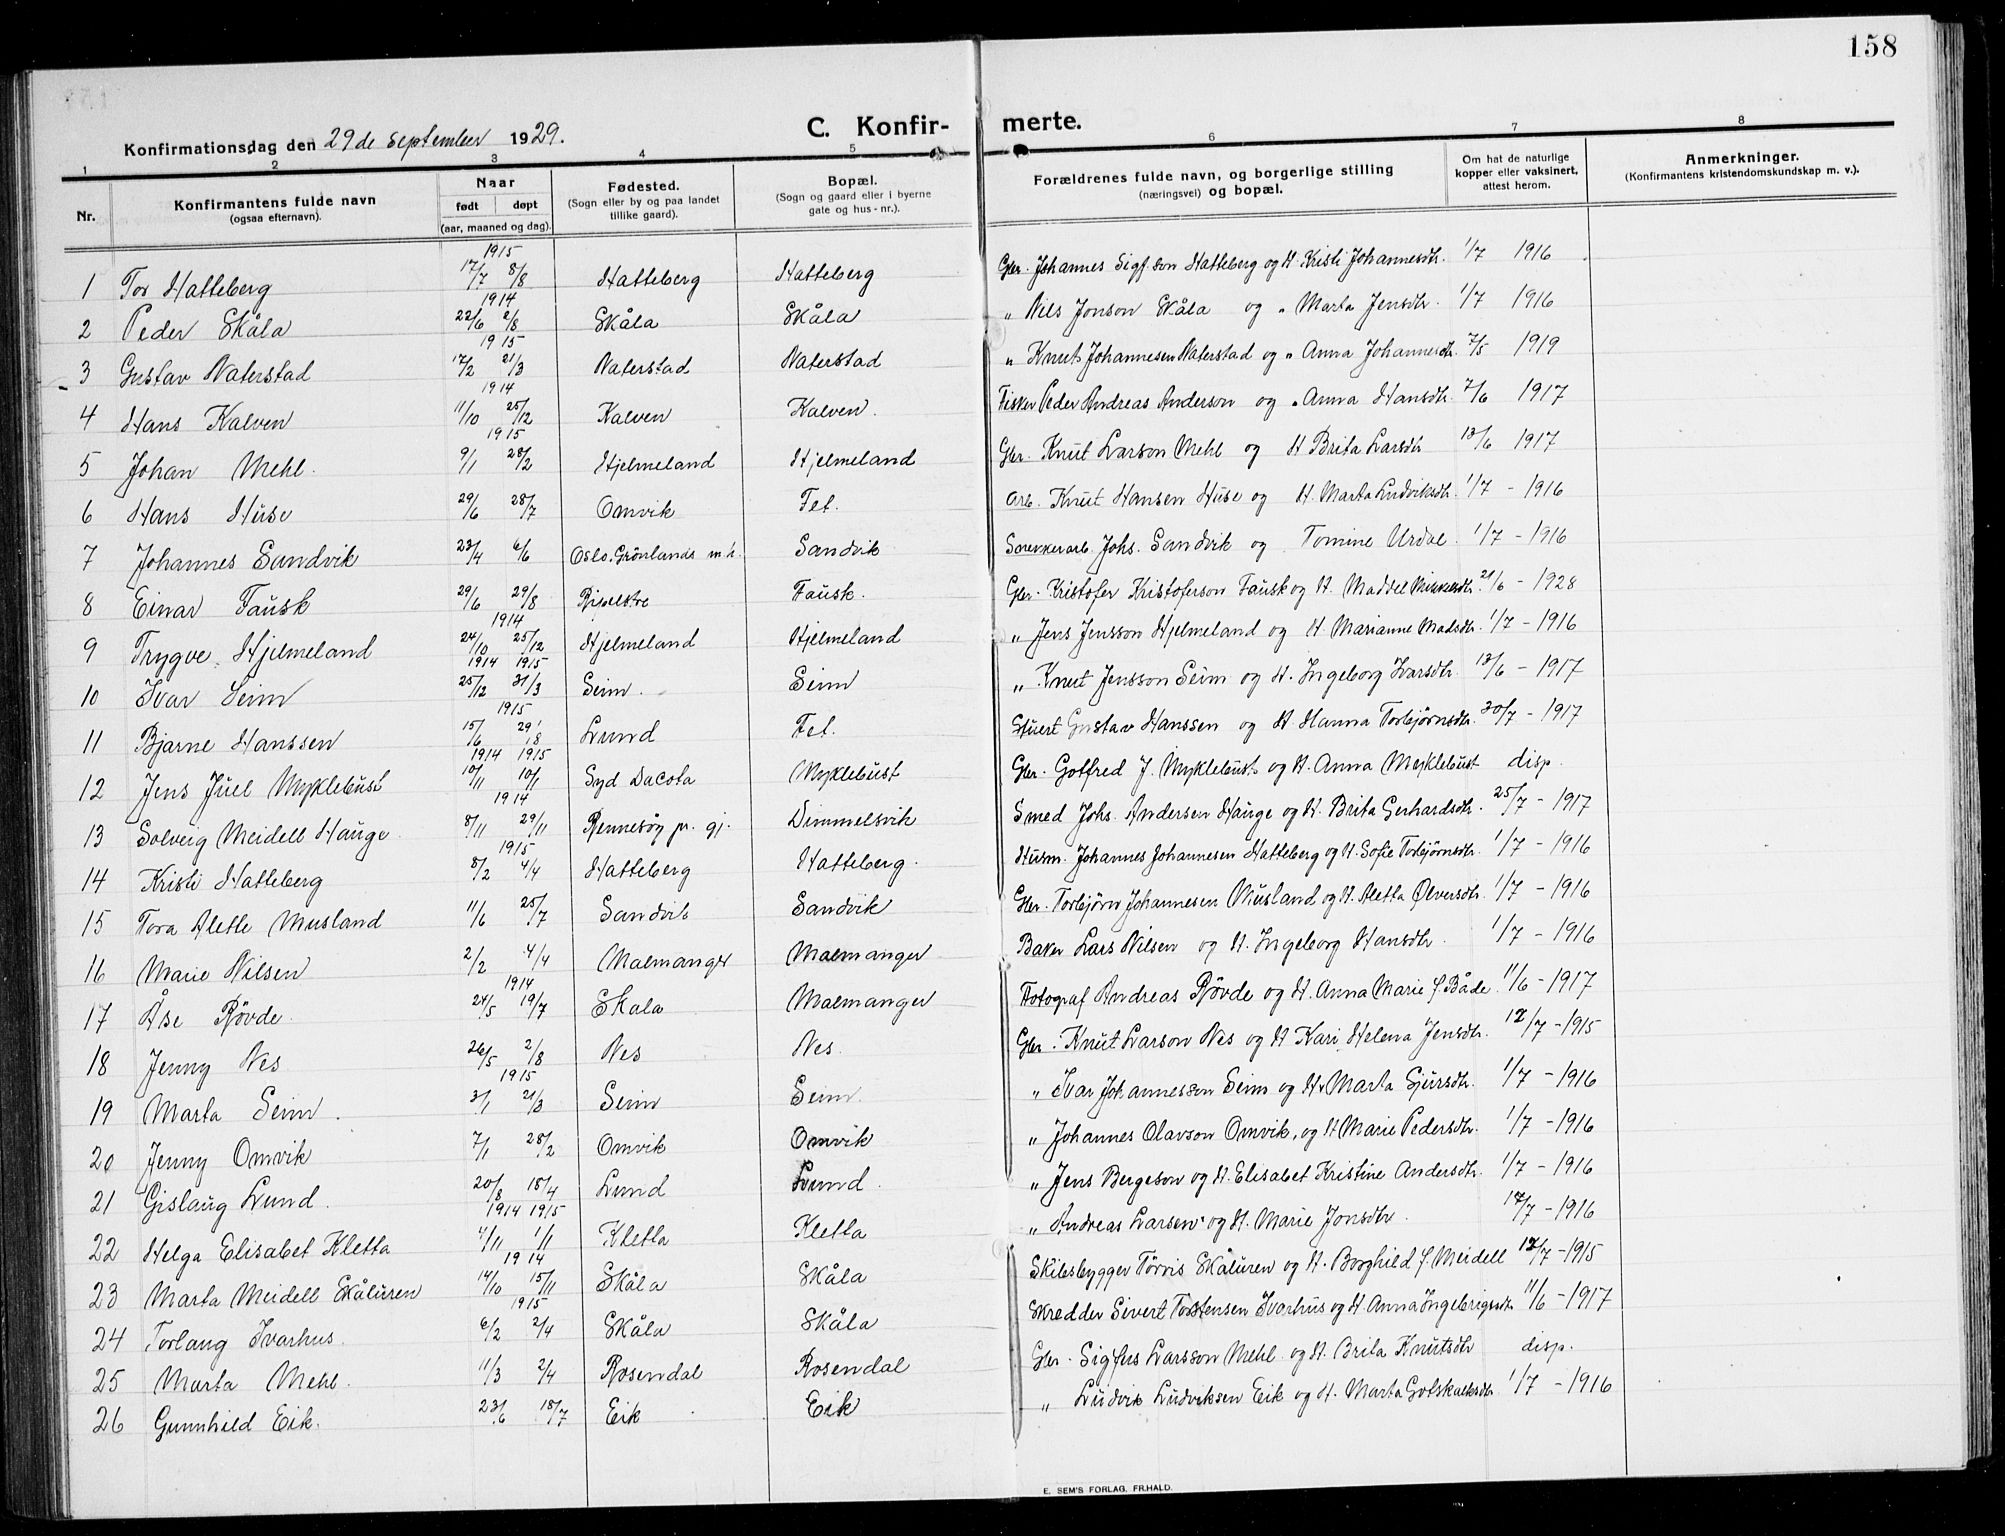 158
Konfirmationsdag den 29de September 1929. C. Konfirmerte.
1 2 3 4 5 6 7 8
Nr. Konfirmantens fulde navn (ogsaa efternavn). Naar født døpt (aar, maaned og dag). Fødested. (Sogn eller by og paa landet tillike gaard). Bopæl. (Sogn og gaard eller i byerne gate og hus-nr.). Forældrenes fulde navn, og borgerlige stilling (næringsvei) og bopæl. Om hat de naturlige kopper eller vaksinert, attest herom. Anmerkninger. (Konfirmantens kristendomskundskap m. v.).
1915
1 Tor Hatteberg 17/7 8/8 Hatteberg Hatteberg Gbr. Johannes Sigf.son Hatteberg og H. Kristi Johannesdtr. 1/7 1916
1914
2 Peder Skåla 22/6 2/8 Skåla Skåla " Nils Jonson Skåla og " Marta Jensdtr. 1/7 1916
1915
3 Gustav Naterstad 17/2 21/3 Naterstad Naterstad " Knut Johannesen Naterstad og " Anna Johannesdtr. 7/5 1919
1914
4 Hans Kalven 11/10 25/12 Kalven Kalven. Fisker Peder Andreas Anderson og " Anna Hansdtr. 7/6 1917
1915
5 Johan Mehl. 9/1 28/2 Hjelmeland Hjelmeland Gbr. Knut Larson Mehl og H Brita Larsdtr 13/6 1917
6 Hans Huse 29/6 28/7 Omvik Fet. Arb. Knut Hansen Huse og H. Marta Ludviksdtr. 1/7 - 1916
7 Johannes Sandvik 23/4 6/6 Oslo. Grönlands m.h. Sandvik Johs. Sandvik og Tomine Urdal 1/7 - 1916
8 Einar Fausk 29/6 29/8 Fausk. Gbr. Kristofer Kristoferson Fausk og H. 21/6 - 1928
1914
9 Trygve Hjelmeland 24/10 25/12 Hjelmeland Hjelmeland " Jens Jensson Hjelmeland og H Marianne Madsdtr. 1/7 - 1916
1914 1915
10 Ivar Seim 25/12 31/3 Seim. Seim " Knut Jensson Seim og H. Ingeborg Ivarsdtr. 13/6 - 1917
1915
11 Bjarne Hanssen 15/6 29/8 Lund Fet. Stuert Gustav Hanssen og H. Hanna Torbjörnsdtr. 30/7 - 1917
1914 1915
12 Jens Juel Myklebust 10/11 10/1 Syd Dacota Myklebust Gbr. Gotfred J. Myklebust og H. Anna Myklebust disp.
1914
13 Solveig Meidell Hauge. 8/11 29/11 Rennesöy pr. gj. Dimmelsvik Smed Johs. Andersen Hauge og H. Brita Gerhardsdtr. 25/7 - 1917
1915
14 Kristi Hatteberg 8/2 4/4 Hatteberg Hatteberg. Husm. Johannes Johannesen Hatteberg og H. Sofie Torbjörnsdtr. 1/7 - 1916
15 Tora Alette Musland 11/6 25/7 Sandvik Sandvik Gbr. Torbjörn Johannesen Musland og H. Aletta Ølversdtr. 1/7 - 1916
16 Marie Nilsen 2/2 4/4 Malmanger Malmanger Baker Lars Nilsen og H. Ingeborg Hansdtr. 1/7 - 1916
1914
17 Åse Rövde. 24/5 19/7 Skala Malmanger Fotograf Andreas Rövde og H. Anna Marie f. Både 11/6 - 1917
18 Jenny Nes 26/5 2/8 Nes Nes. Gbr. Knut Larson Nes og H Kari Helena Jensdtr. 12/7 - 1915
1915
19 Marta Seim. 3/1 21/3 Seim Seim. " Ivar Johannesson Seim og H. Marta Sjursdtr. 1/7 - 1916
20 Jenny Omvik 7/1 28/2 Omvik Omvik " Johannes Olavson Omvik, og H Marie Pedersdtr. 1/7 - 1916
21 Gislaug Lund. 20/8 18/4 Lund Lund. " Jens Bergeson og H. Elisabet Kristine Andersdtr. 1/7 - 1916
1914 1915
22 Helga Elisabet Kletta 4/11 1/1 Kletta Kletta " Andreas Larsen og H. Marie Jonsdtr. 12/7 - 1916
1914
23 Marta Meidell Skåluren 14/10 15/11 Skåla Skåla Skibsbygger Tørris Skåluren og H. Borghild f. Meidell 12/7 - 1915
1915
24 Torlaug Ivarhus. 6/2 2/4 Skåla Skåla Skredder Sivert Torstensen Ivarhus og H Anna Ingebrigtsdtr. 11/6 - 1917
25 Marta Mehl. 11/3 2/4 Rosendal Rosendal Gbr. Sigfus Larsson Mehl og H. Brita Knutsdtr disp.
26 Gunnhild Eik. 23/6 18/7 Eik Eik " Ludvik Ludviksen Eik og H. Marta Gotskalksdtr. 1/7 - 1916
E. SEM'S FORLAG, FR.HALD.